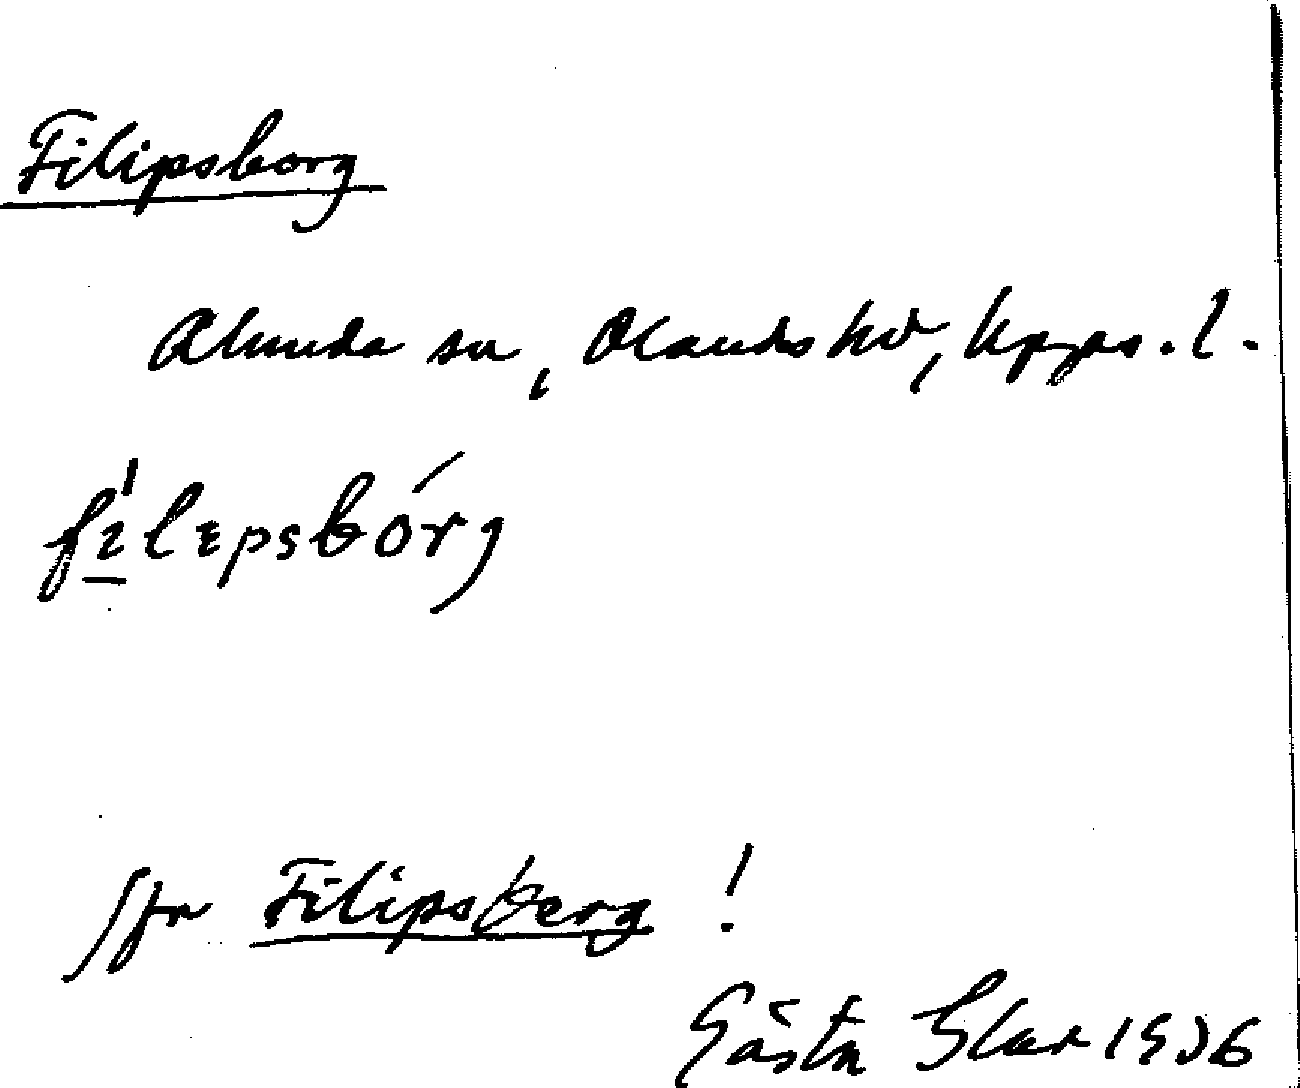 Filipsborg
Alunda sn, Olands hd, Upps. l.
filepsbórg
Jfr Filipsberg !
Gösta 1936